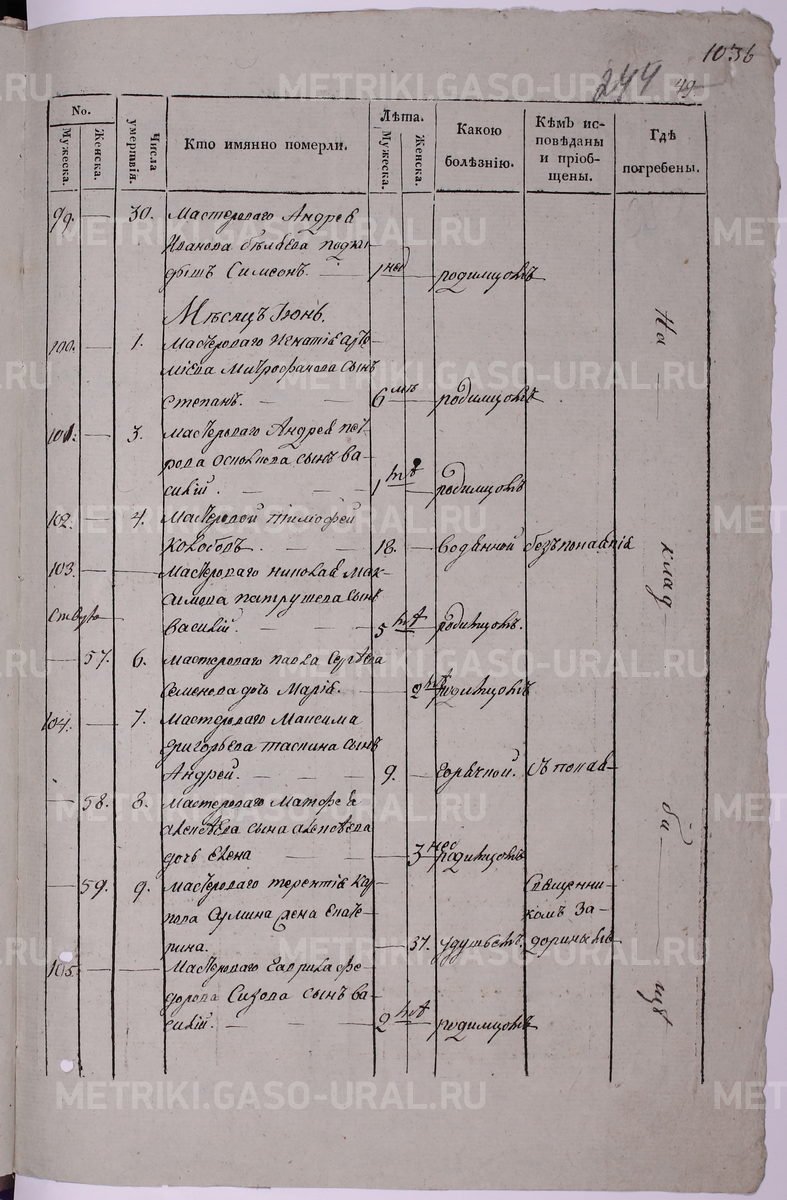 1036
244
49
No.
Мужеска.
Женска.
Числа умертвія.
Кто имянно померли.
Лѣта.
Мужеска.
Женска.
Какою болѣзнію.
Кѣмъ исповѣданы и пріобщены.
Гдѣ погребены.
99. 30. Мастероваго Андрея
Иванова Бѣляева подки
дышъ Симеонъ. 1 нед родимцомъ
Мѣсяцъ Іюнь.
100. 1. Мастероваго Игнатія Арте
міева Митрофанова сынъ
Степанъ. 6 родимцомъ
101. 3. Мастероваго Андрея Пет
рова сынъ Ва
силій. 1 родимцомъ
102. 4. Мастеровой Тимофей
18. водянной безъ покаянія
103. Мастероваго Николая Мак
симова Патрушева сынъ
Василій. 5 родимцомъ.
57. 6. Мастероваго Павла
Семенова дочь Марія. 2 родимцомъ
104. 7. Мастероваго Максима
Григорьева Таскина сынъ
Андрей. 9. горячкой. съ покая
58. 8. Мастероваго
сына
дочь Елена 3 нед родимцомъ
59. 9. Мастероваго Терентія Кар
пова Сумина жена Екате
рина. 37. удушьемъ. Священни
комъ За
доринымъ
105. Мастероваго Гаврила Фе
дорова Сизова сынъ Ва
силій. 2 родимцомъ
На
клад
би
щѣ
METRIKI.GASO-URAL.RU